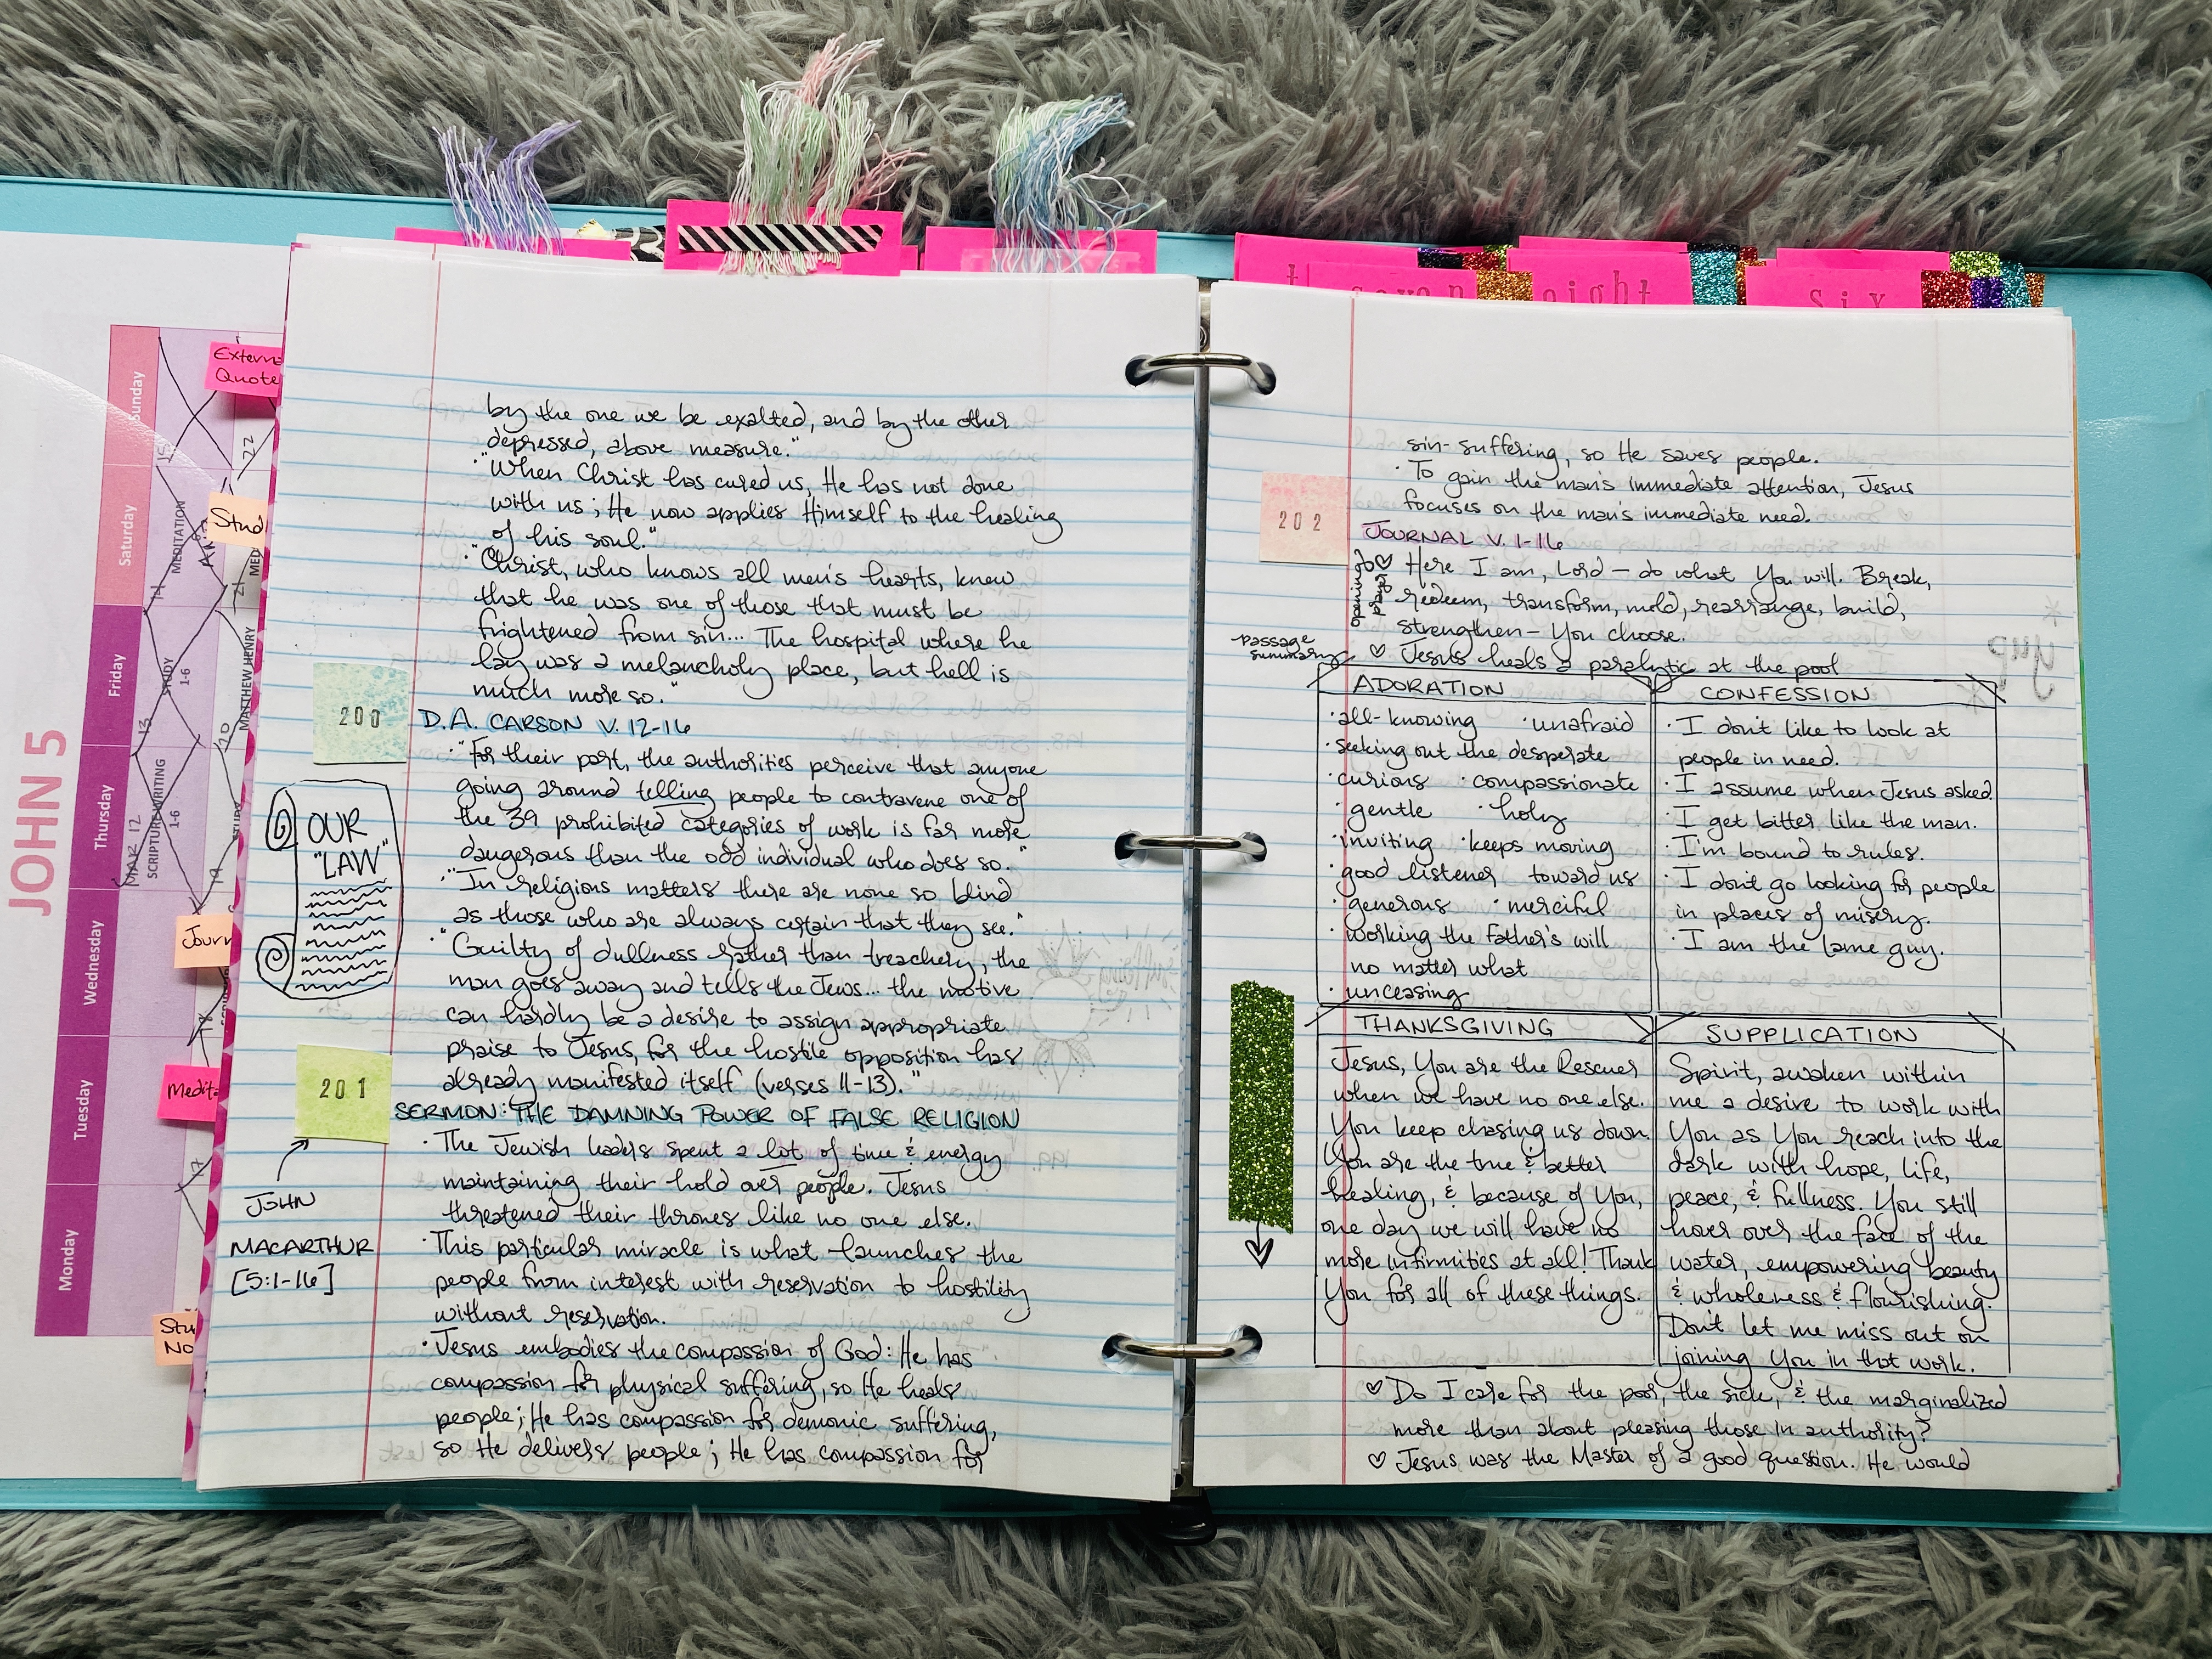 JOHN 5
Sunday
Saturday
Friday
Thursday
Wednesday
Tuesday
Monday
MEDITATION
STUDY
1-6
MAR 12
SCRIPTURE WRITING
1-6
MATTHEW HENRY
13
22
21
20
19
17
Externa
Quote
Stud
Journ
Medita
Stu
No
by the one we be exalted, and by the other
depressed, above measure."
· "When Christ has cured us, He has not done
with us; He now applies Himself to the healing
of his soul."
· "Christ, who knows all men's hearts, knew
that he was one of those that must be
frightened from sin... The hospital where he
lay was a melancholy place, but hell is
much more so."
200
D.A. CARSON V. 12-16
· "For their part, the authorities perceive that anyone
going around telling people to contravene one of
the 39 prohibited categories of work is far more
dangerous than the odd individual who does so."
· "In religious matters there are none so blind
as those who are always certain that they see."
· "Guilty of dullness rather than treachery, the
man goes away and tells the Jews... the motive
can hardly be a desire to assign appropriate
praise to Jesus, for the hostile opposition has
already manifested itself (verses 11-13)."
OUR
"LAW"
201
SERMON: THE DAMNING POWER OF FALSE RELIGION
JOHN
MACARTHUR
[5:1-16]
· The Jewish leaders spent a lot of time & energy
maintaining their hold over people. Jesus
threatened their thrones like no one else.
· This particular miracle is what launches the
people from interest with reservation to hostility
without reservation.
· Jesus embodies the compassion of God: He has
compassion for physical suffering, so He heals
people; He has compassion for demonic suffering,
so He delivers people; He has compassion for
seven
eight
six
sin-suffering, so He saves people.
· To gain the man's immediate attention, Jesus
focuses on the man's immediate need.
202
JOURNAL V. 1-16
opening
prayer
♡ Here I am, Lord – do what You will. Break,
redeem, transform, mold, rearrange, build,
strengthen – You choose.
passage
summary
♡ Jesus heals a paralytic at the pool
ADORATION
· all-knowing · unafraid
· seeking out the desperate
· curious · compassionate
· gentle · holy
· inviting · keeps moving
· good listener toward us
· generous · merciful
· working the Father's will
no matter what
· unceasing
CONFESSION
· I don't like to look at
people in need.
· I assume when Jesus asked.
· I get bitter like the man.
· I'm bound to rules.
· I don't go looking for people
in places of misery.
· I am the lame guy.
THANKSGIVING
Jesus, You are the Rescuer
when we have no one else.
You keep chasing us down.
You are the true & better
healing, & because of You,
one day we will have no
more infirmities at all! Thank
You for all of these things.
SUPPLICATION
Spirit, awaken within
me a desire to work with
You as You reach into the
dark with hope, life,
peace, & fullness. You still
hover over the face of the
water, empowering beauty
& wholeness & flourishing.
Don't let me miss out on
joining You in that work.
♡ Do I care for the poor, the sick, & the marginalized
more than about pleasing those in authority?
♡ Jesus was the Master of a good question. He would